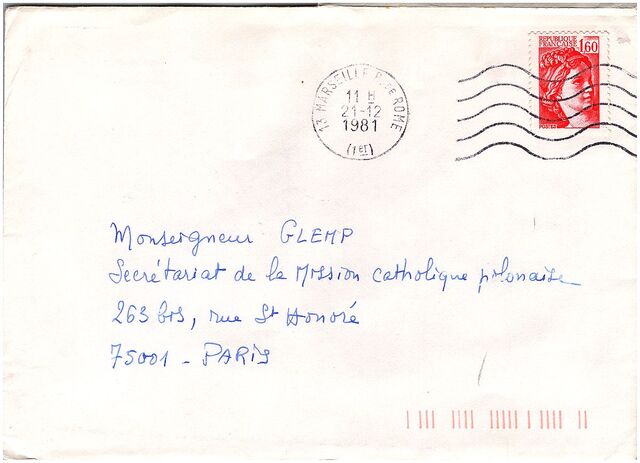 REPUBLIQUE
FRANÇAISE 1,60
POSTES
13 MARSEILLE R. DE ROME
11 H
21-12
1981
(1er)
Monseigneur GLEMP
Secrétariat de la Mission catholique polonaise
263 bis, rue St Honoré
75001 - PARIS